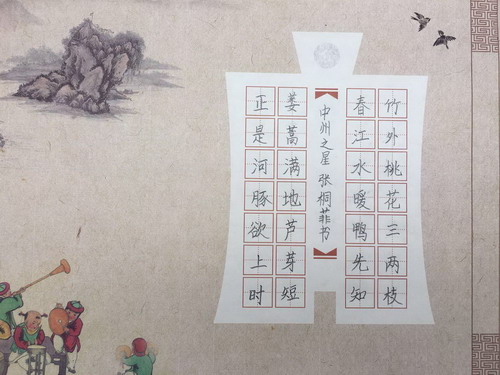 竹外桃花三两枝
春江水暖鸭先知
中州之星 张桐菲书
蒌蒿满地芦芽短
正是河豚欲上时